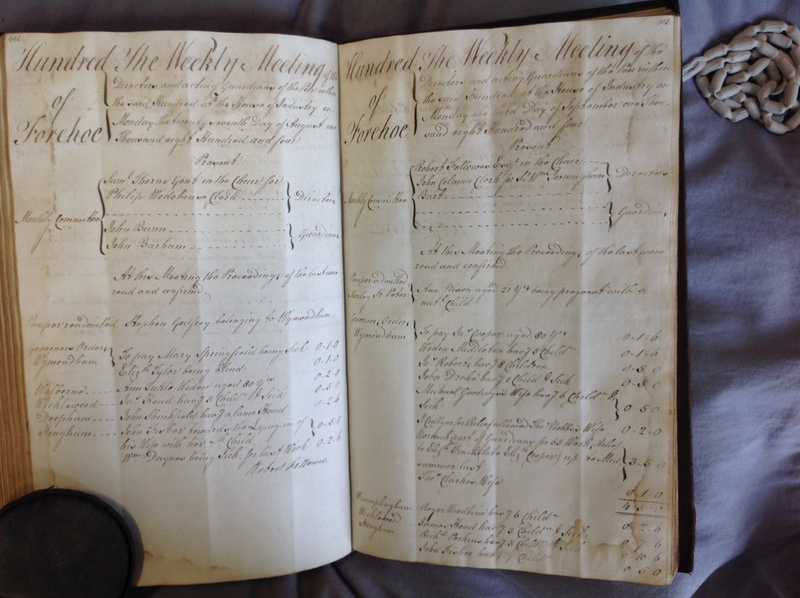 Hundred of Forehoe
The Weekly Meeting of the
Directors and acting Guardians of the Poor within
the said Hundred at the House of Industry on
Monday the twenty seventh Day of August one
Thousand eight Hundred and four
Present
Monthly Committee
Saml. Thorne Gent in the Chair for
Philip Wodehouse Clerk
Directors
John Bunn
John Barham
Guardians
At this Meeting the Proceedings of the last were
read and confirmed.
Pauper readmitted Stephen Godfrey belonging to Wymondham
Governors Orders
Wymondham To pay Mary Springfield being Sick 0.1.0
Elizth. Tyler being blind 0.1.0
Ann Widow aged 80 Yrs. 0.2.0
Wicklewood Jas. Head havg. 3 Childn. & Sick 0.5.0
Deopham John havg. a lame Hand 0.2.6
Hingham John towards the lying in of
his Wife with her Child 0.5.0
Wm. being Sick for last Week 0.2.6
Robert Fellowes
103
Hundred of Forehoe
The Weekly Meeting of the
Directors and acting Guardians of the Poor within
the said Hundred at the House of Industry on
Monday the third Day of September one Thou-
sand eight Hundred and four
Present
Monthly Committee
Robert Fellowes Esqr. in the Chair
John Colman Clerk for Sr. Wm. Jerningham
Bart.
Directors
Guardians
At this Meeting the Proceedings of the last were
read and confirmed
Pauper admitted
Ann Nixon aged 21 Yrs. being pregnant with a
Child
Governors Orders
Wymondham
To pay Jas. Cooper aged 80 Yrs. 0.1.6
Widow Middleton havg. 3 Childn. 0.1.6
Jas. Roberts havg. 8 Children 0.5.0
John Drake havg. 1 Child & Sick 0.5.0
Michael havg. 6 Childn. &
Sick 0.5.0
Wife 0.2.0
for 65 Weeks Relief
to Elizth. Cooper up to
summer last 3.5.0
Thos. Clarkes Wife 0.1.0
Wramplingham Roger havg. 6 Childn. 0.2.6
Wicklewood James Head havg. 3 Childn. & Sick 0.7.6
Hingham Richd. Perkins havg. 3 Childn. & Sick 0.10.6
John havg. Childn. 0.5.0